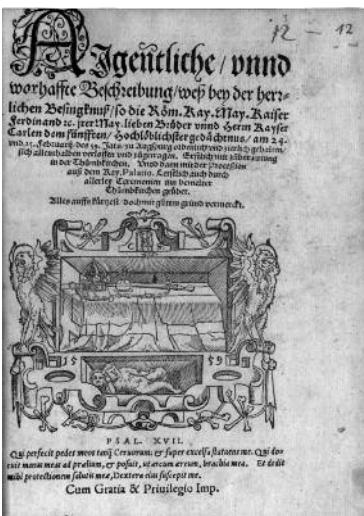 12 — 12
AIgentliche / vnnd
worhaffte Beschreibung / weß bey der herr-
lichen Besingknuß / so die Röm. Kay. May. Kaiser
Ferdinand ꝛc. jrer May. lieben Brůder vnnd Herrn Kayser
Carlen dem fünfften / Hochlöblichster gedächtnus / am 24.
vnd 25. Februarij des 59. Jars / zu Augspurg ordenlich vnd zierlich gehalten /
sich allenthalben verloffen vnd zůgetragen. Erstlich mit zůberaitung
in der Thůmbkirchen. Vnd dann mit der Procession
auß dem Kay. Palatio. Letstlich auch durch
allerley Ceremonien inn bemelter
Thůmbkirchen
Alles auffs kürtzest / doch mit gůtem grund vermerckt.
15 59
PSAL. XVII.
Qui perfecit pedes meos tanq̃ Ceruorum, & super excelsa statuens me. Qui do-
cuit manus meas ad prælium, & posuit, ut arcum æreum, brachia mea. Et dedit
mihi protectionem salutis meæ, Dextera eius suscepit me.
Cum Gratia & Priuilegio Imp.